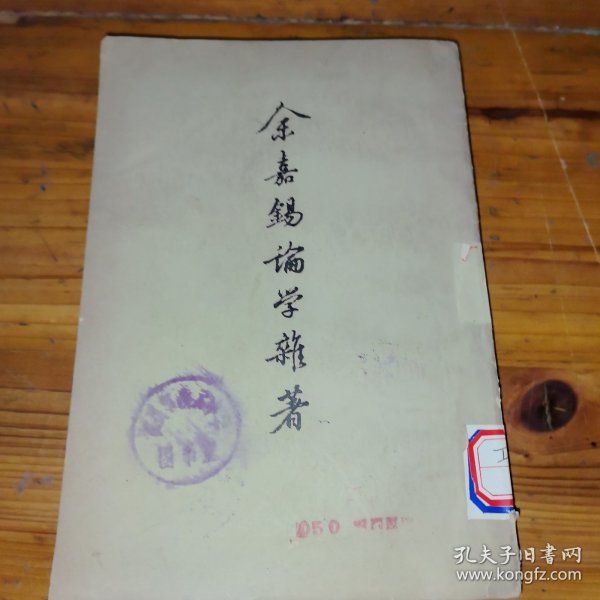 余嘉錫論学雜著
050
孔夫子旧书网
www.kongfz.com